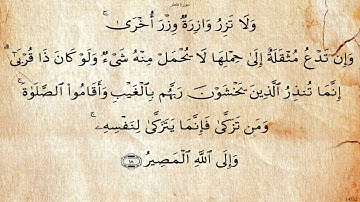 سورة فاطر
وَلَا تَزِرُ وَازِرَةٌ وِزْرَ أُخْرَىٰ ۚ
وَإِن تَدْعُ مُثْقَلَةٌ إِلَىٰ حِمْلِهَا لَا يُحْمَلْ مِنْهُ شَيْءٌ وَلَوْ كَانَ ذَا قُرْبَىٰ ۗ
إِنَّمَا تُنذِرُ الَّذِينَ يَخْشَوْنَ رَبَّهُم بِالْغَيْبِ وَأَقَامُوا الصَّلَاةَ ۚ
وَمَن تَزَكَّىٰ فَإِنَّمَا يَتَزَكَّىٰ لِنَفْسِهِ ۚ
وَإِلَى اللَّهِ الْمَصِيرُ ١٨